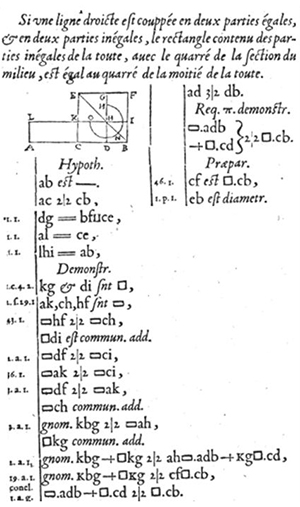 Si vne ligne droicte est couppée en deux parties égales,
& en deux parties inégales, le rectangle contenu des par-
ties inégales de la toute, auec le quarré de la section du
milieu, est égal au quarré de la moitié de la toute.
E G F
L K H I
A C D B
ad 3|2 db.
Req. π. demonstr.
▭.adb
-+☐.cd } 2|2 ☐.cb.
Præpar.
46.1. cf est ☐.cb,
1.p.1. eb est diametr.
Hypoth.
ab est —.
ac 2|2 cb,
dg = bfuce,
1.1. al = ce,
lhi = ab,
Demonstr.
1.c.4.2. kg & di snt ☐,
1.f.29.1 ak, ch, hf snt ▭,
43.1. ▭hf 2|2 ▭ch,
☐di est commun. add.
1.a.1. ▭df 2|2 ▭ci,
36.1. ▭ak 2|2 ▭ci,
1.a.1. ▭df 2|2 ▭ak,
▭ch commun. add.
2.a.1. gnom. kbg 2|2 ▭ah,
☐kg commun. add.
gnom. kbg-+☐kg 2|2 ah▭.adb-+kg☐.cd,
19.a.1. gnom. kbg-+☐kg 2|2 cf☐.cb,
concl.
1.a.g. ▭.adb-+☐.cd 2|2 ☐.cb.